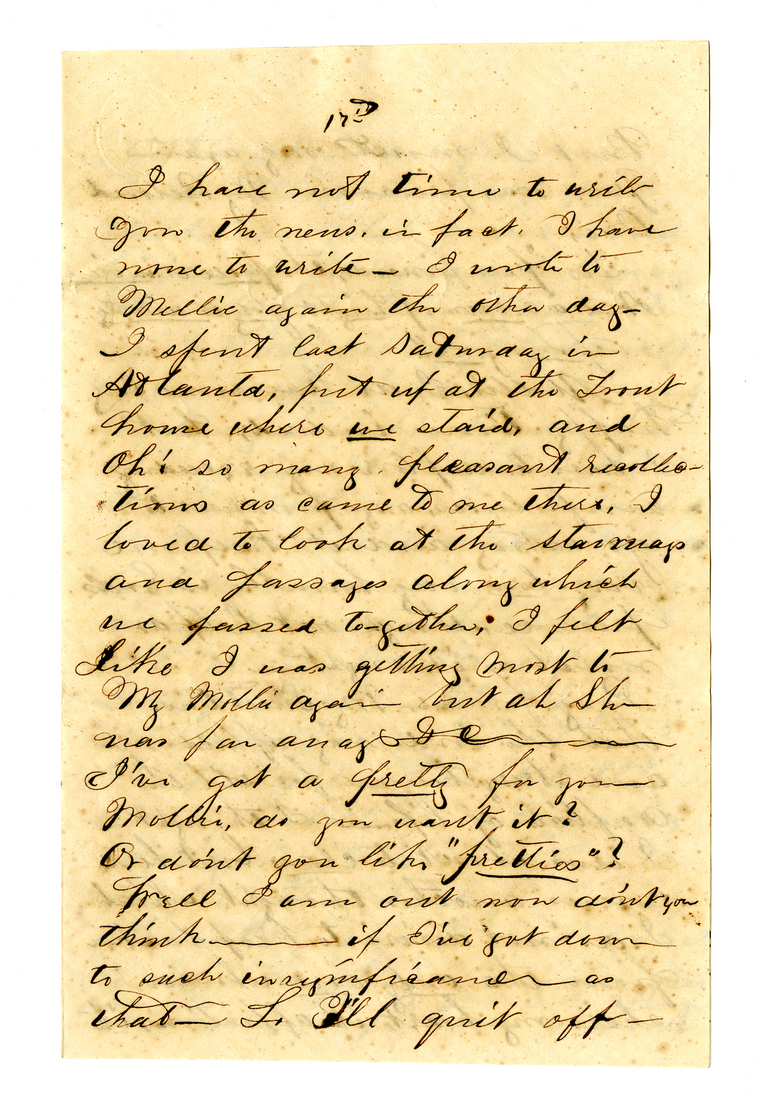 17th
I have not time to write
you the news. in fact. I have
none to write — I wrote to
Mellie again the other day —
I spent last Saturday in
Atlanta, put up at the Trout
house where we staid, and
Oh! so many pleasant recollec-
tions as came to me there, I
loved to look at the stairways
and passages along which
we passed to-gether; I felt
like I was getting most to
My Mollie again but ah She
was far away
I've got a pretty for you
Mollie, do you want it?
Or don't you like "pretties"?
Well I am out now don't you
think — if I've got down
to such insignificance as
that — So I'll quit off —